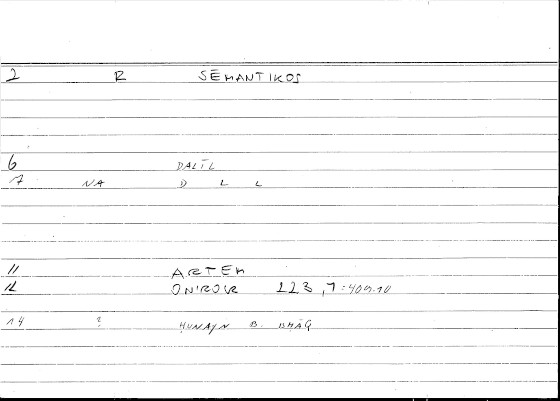 2 R SĒMANTIKOS
6 DALĪL
7 NA D L L
11 ARTEM
12 ONIROCR 223,7:409.10
14 ? HUNAYN B. ISHĀQ